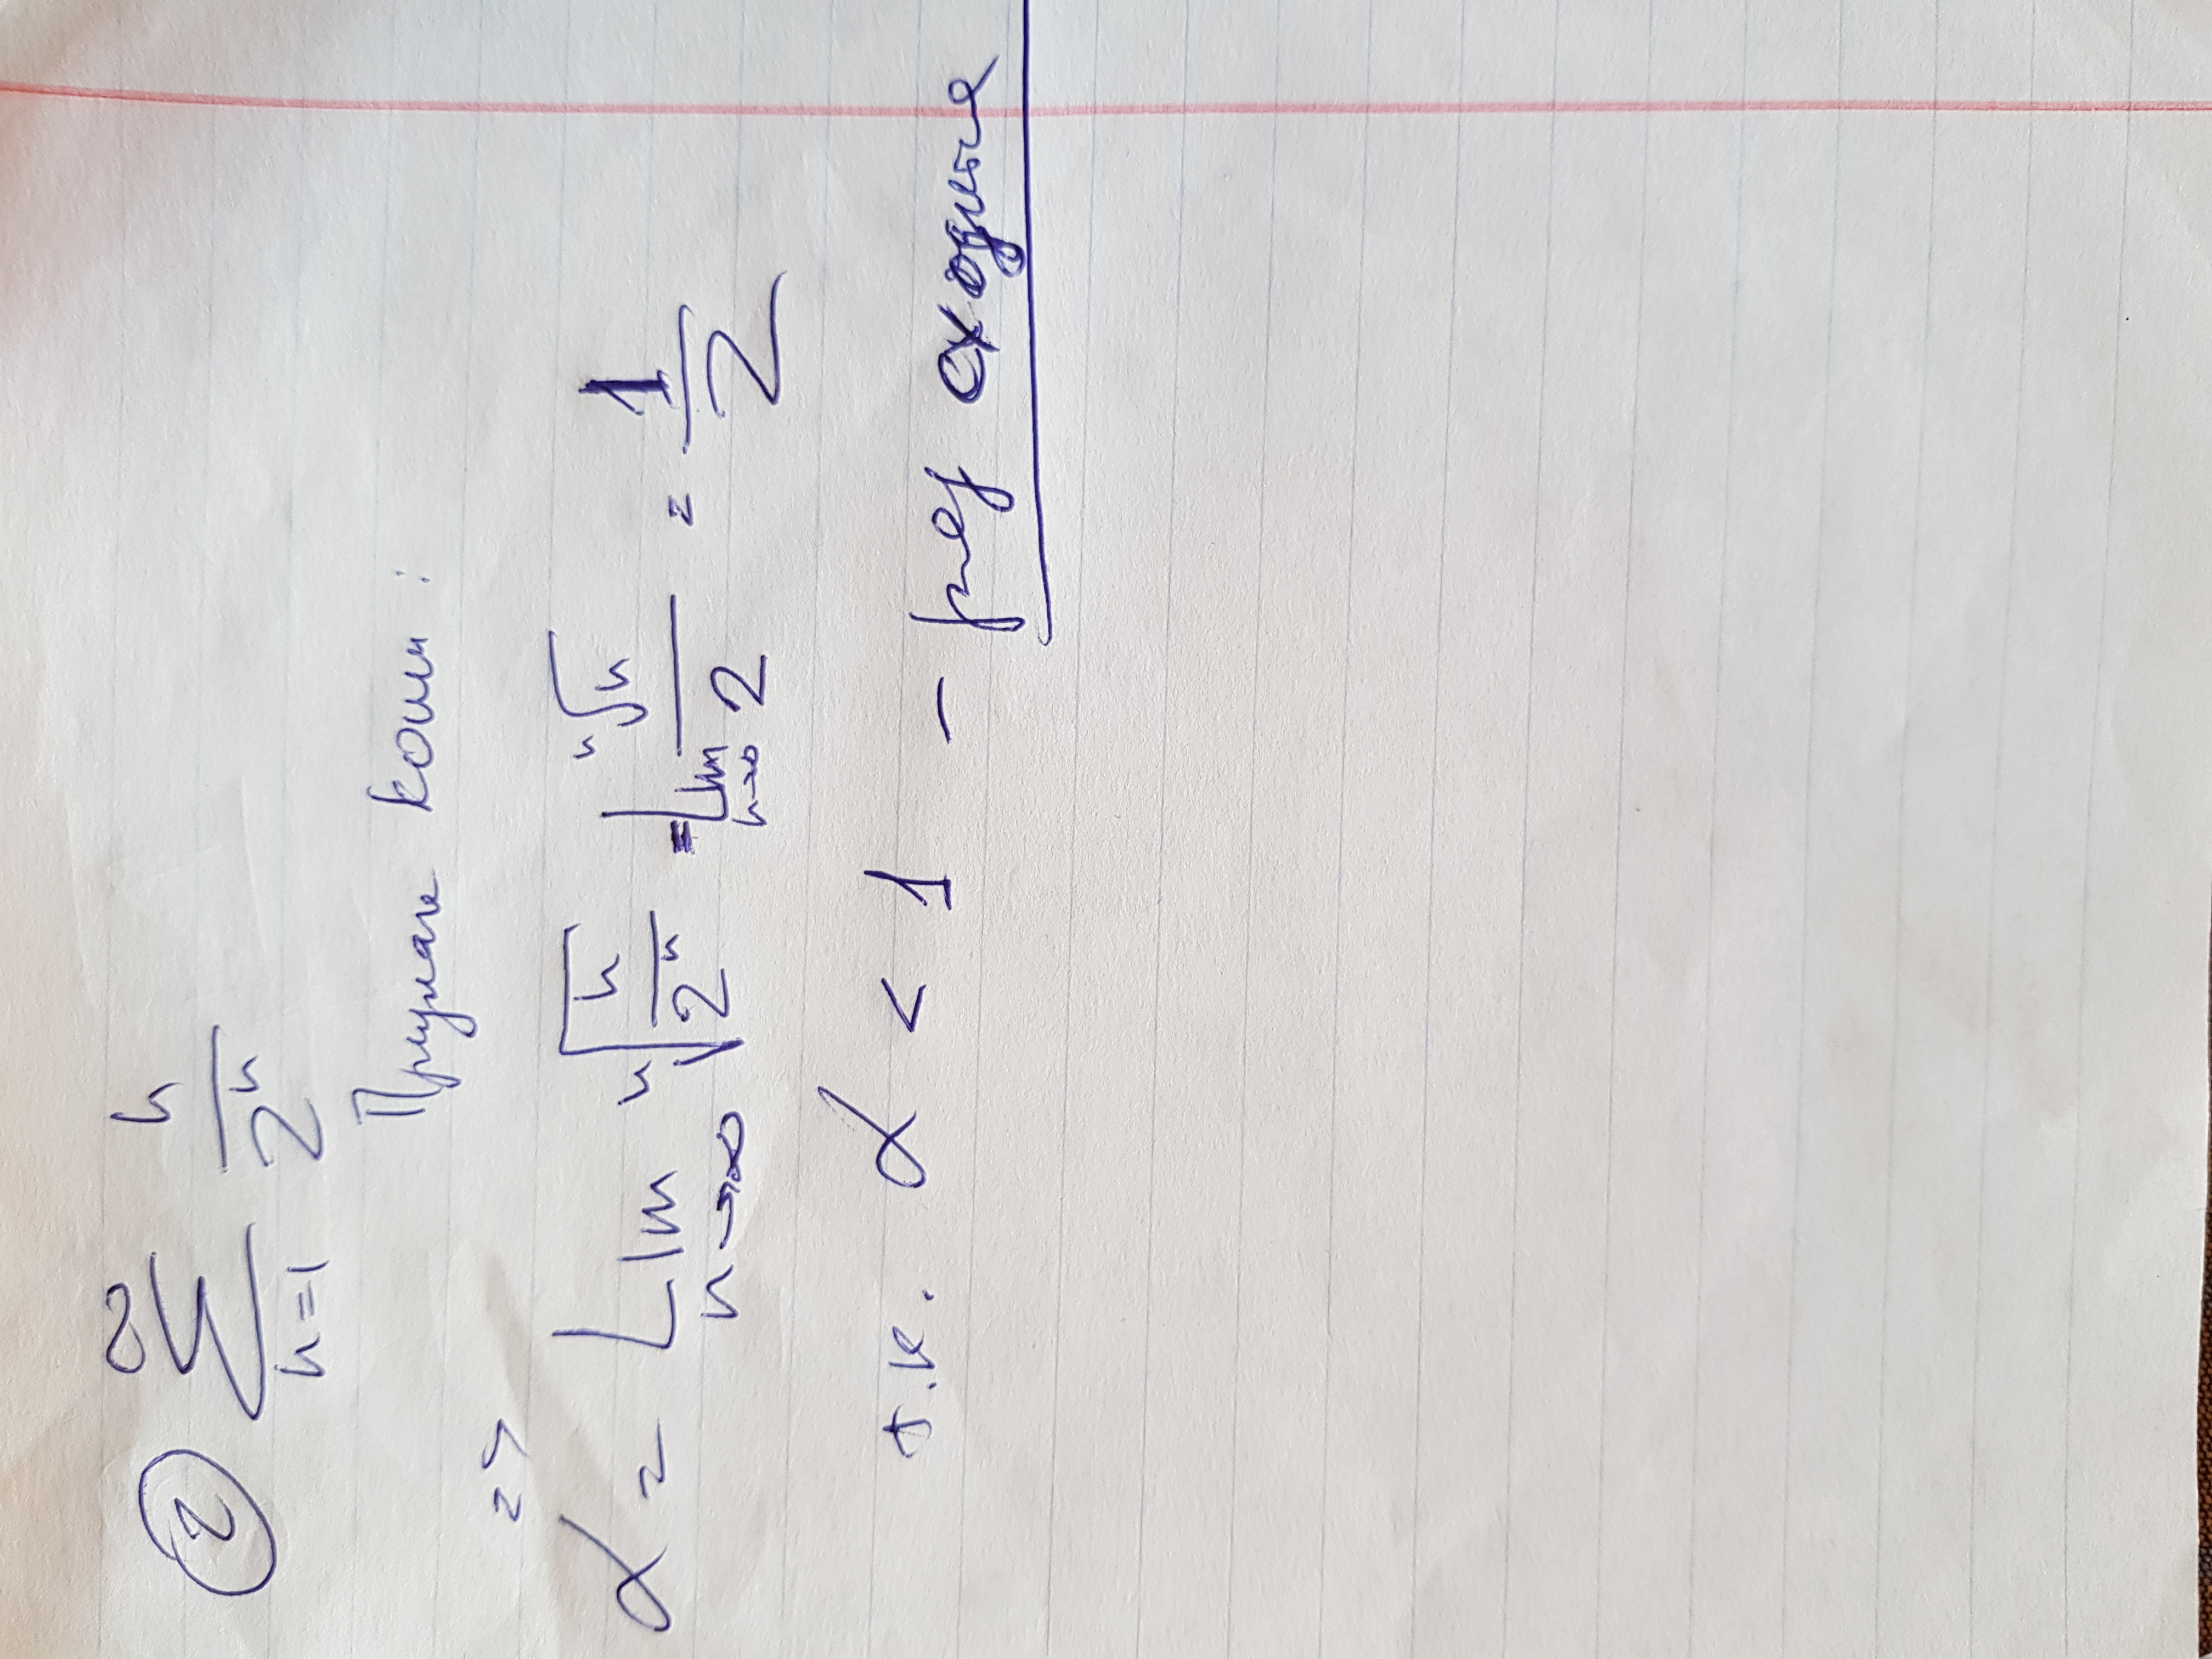 ② ∑_{n=1}^{∞} n/2^n
Признак Коши:
=>
α = Lim_{n→∞} ⁿ√(n/2^n) = Lim_{n→∞} ⁿ√n/2 = 1/2
т.к. α < 1 – ряд сходится